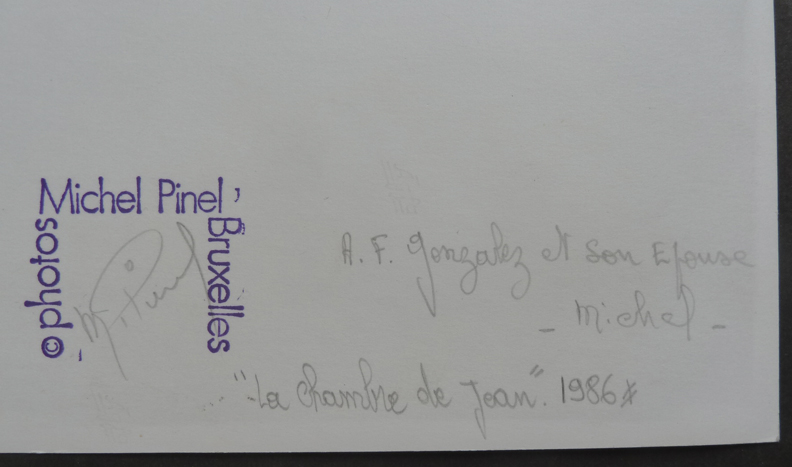 © photos
Michel Pinel,
Bruxelles
M. Pinel
A. F. Gonzalez et son Epouse
- Michel -
"La Chambre de Jean". 1986